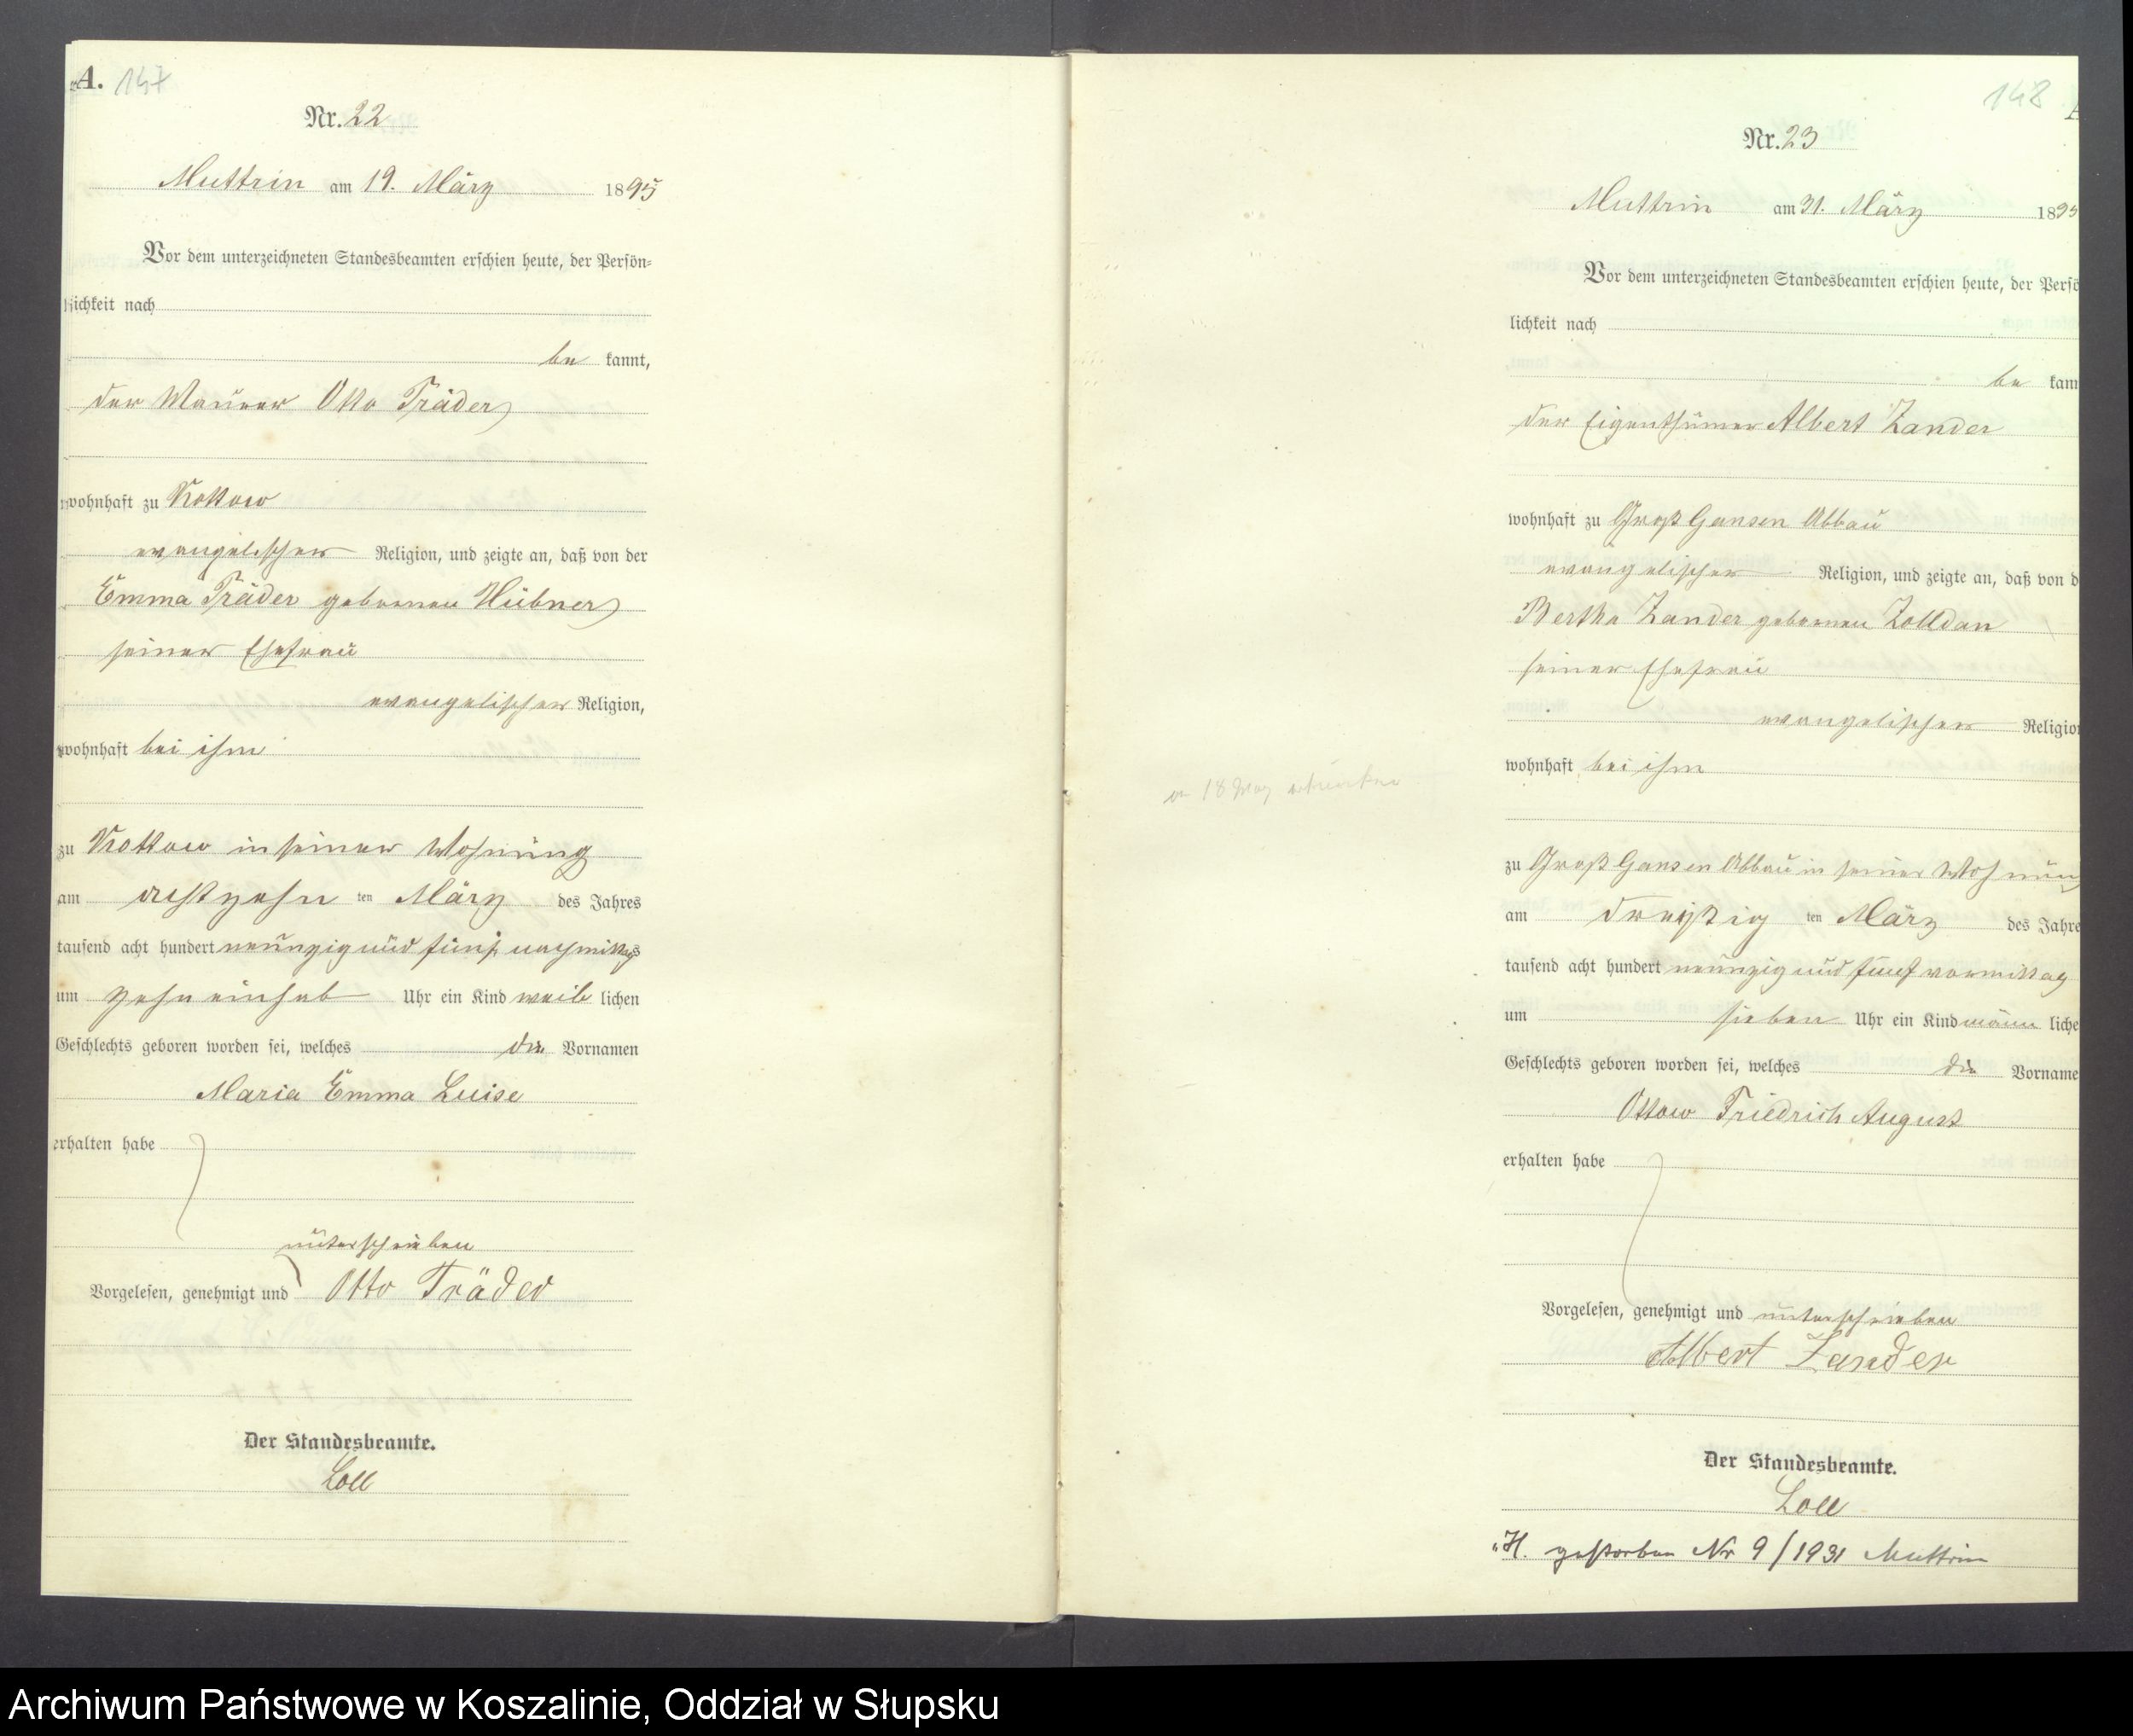 A. 147
Nr. 22
Muttrin am 19. März 1895
Vor dem unterzeichneten Standesbeamten erschien heute, der Persön-
lichkeit nach
be kannt,
der Maurer Otto Träder
wohnhaft zu Kottow
evangelischer Religion, und zeigte an, daß von der
Emma Träder geborenen Hübner
seiner Ehefrau
evangelischer Religion,
wohnhaft bei ihm
zu Kottow in seiner Wohnung
am achtzehn ten März des Jahres
tausend acht hundert neunzig und fünf nachmittags
um zehn einhalb Uhr ein Kind weib lichen
Geschlechts geboren worden sei, welches die Vornamen
Maria Emma Luise
erhalten habe
unterschrieben
Vorgelesen, genehmigt und Otto Träder
Der Standesbeamte.
Loll
148
Nr. 23
Muttrin am 31. März 1895
Vor dem unterzeichneten Standesbeamten erschien heute, der Persö
lichkeit nach
be kann
der Eigenthümer Albert Zander
wohnhaft zu Groß Gansen Abbau
evangelischer Religion, und zeigte an, daß von d
Bertha Zander geborenen Zolldan
seiner Ehefrau
evangelischer Religion
wohnhaft bei ihm
zu Groß Gansen Abbau in seiner Wohnung
am dreißig ten März des Jahre
tausend acht hundert neunzig und fünf vormittag
um sieben Uhr ein Kind männ liche
Geschlechts geboren worden sei, welches die Vorname
Ottow Friedrich August
erhalten habe
Vorgelesen, genehmigt und unterschrieben
Albert Zander
Der Standesbeamte.
Loll
H. gestorben Nr 9/1931 Muttrin
Archiwum Państwowe w Koszalinie, Oddział w Słupsku